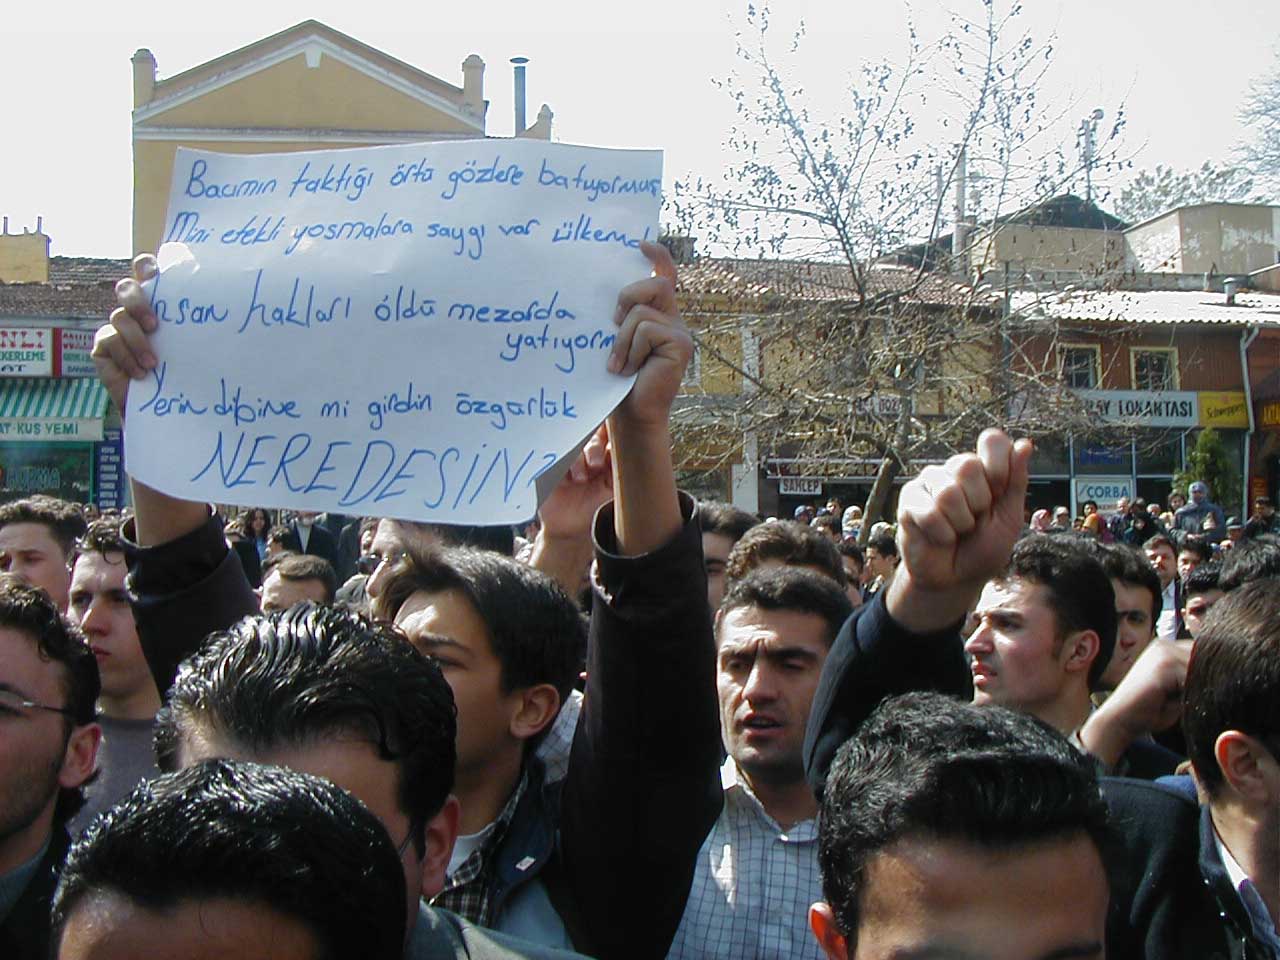 Bacımın taktığı örtü gözlere batıyormuş
Mini etekli yosmalara saygı var ülkemd
İnsan hakları öldü mezarda
yatıyorm
Yerin dibine mi girdin özgürlük
NEREDESİN?
NLI
EKERLEME
AT
AT-KUŞ YEMİ
SAHLEP
ÇORBA
AY LOKANTASI
Schweppes